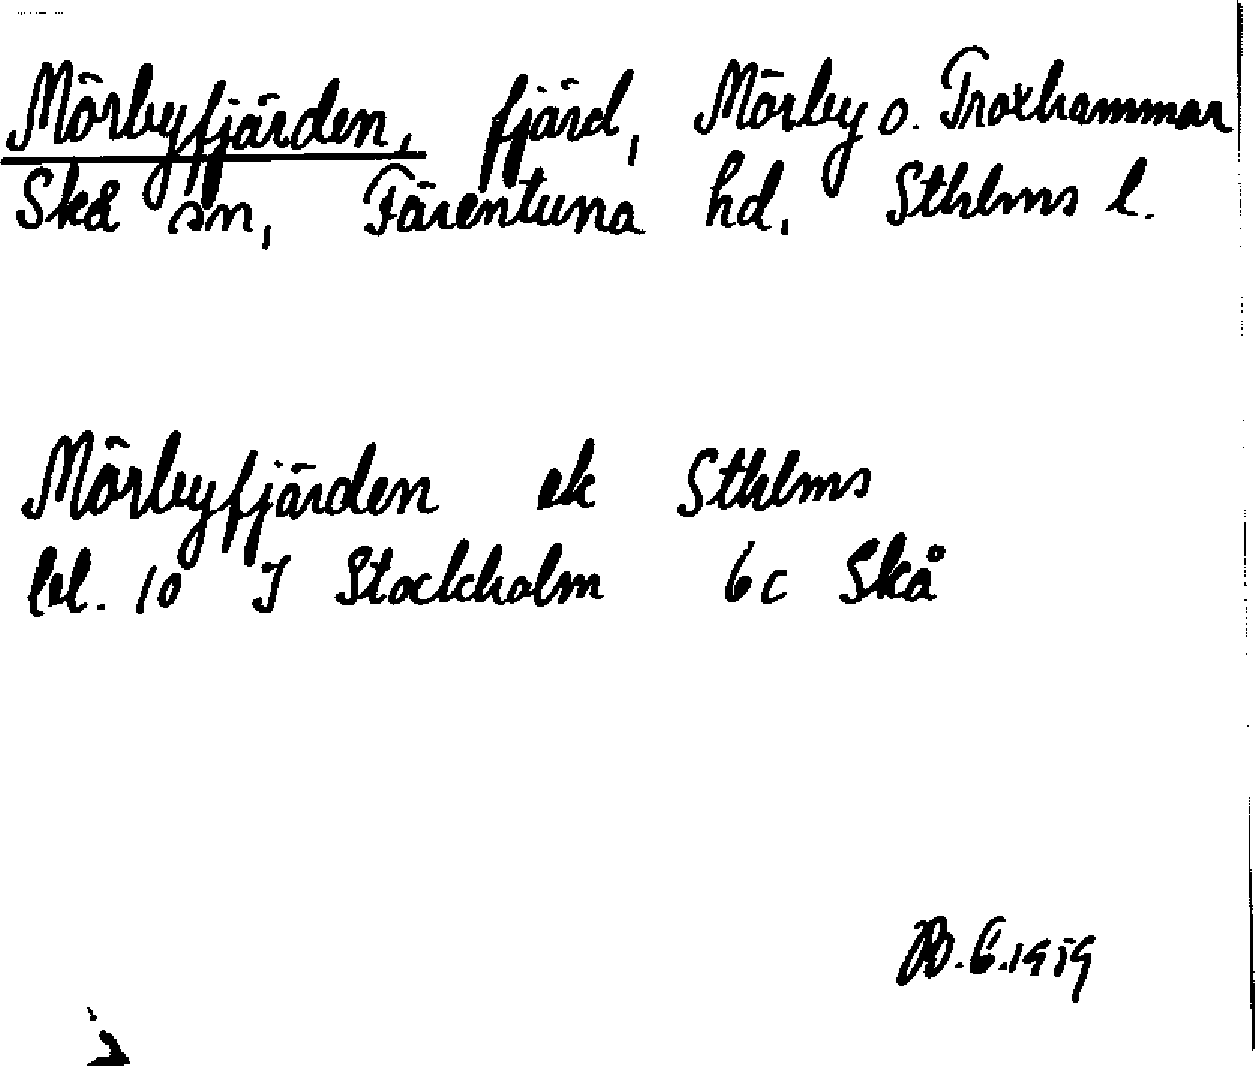 Mörbyfjärden, fjärd, Mörby o. Troxhammar
Skå sn, Färentuna hd, Sthlms l.
Mörbyfjärden ek Sthlms
bl. 10 I Stockholm 6c Skå